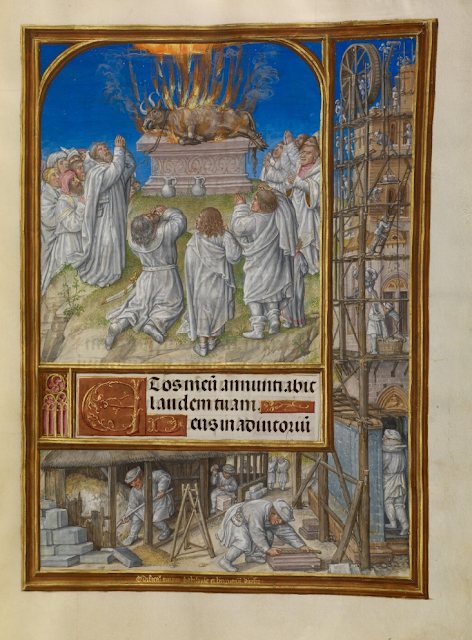 ET os meū annuntiabit
laudem tuam.
Deus in adiutoriū